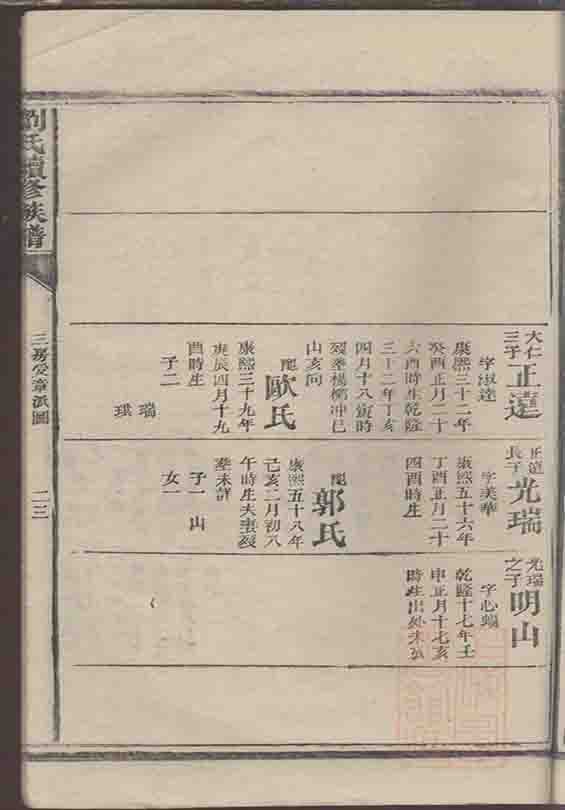 劉氏續修族譜
三房受章派圖
二三
大仁
三子
正達
字淑達
康熙三十二年
癸酉正月二十
六酉時生乾隆
三十二年丁亥
四月十八寅時
歿葬楊柳冲巳
山亥向
配
歐氏
康熙三十九年
庚辰四月十九
酉時生
子二
瑞
琪
正達
長子
光瑞
字美華
康熙五十六年
丁酉正月二十
四酉時生
配
郭氏
康熙五十八年
己亥二月初八
午時生夫婦歿
葬未詳
子一 山
女一
光瑞
之子
明山
字心
乾隆十七年壬
申正月十七亥
時生出外未